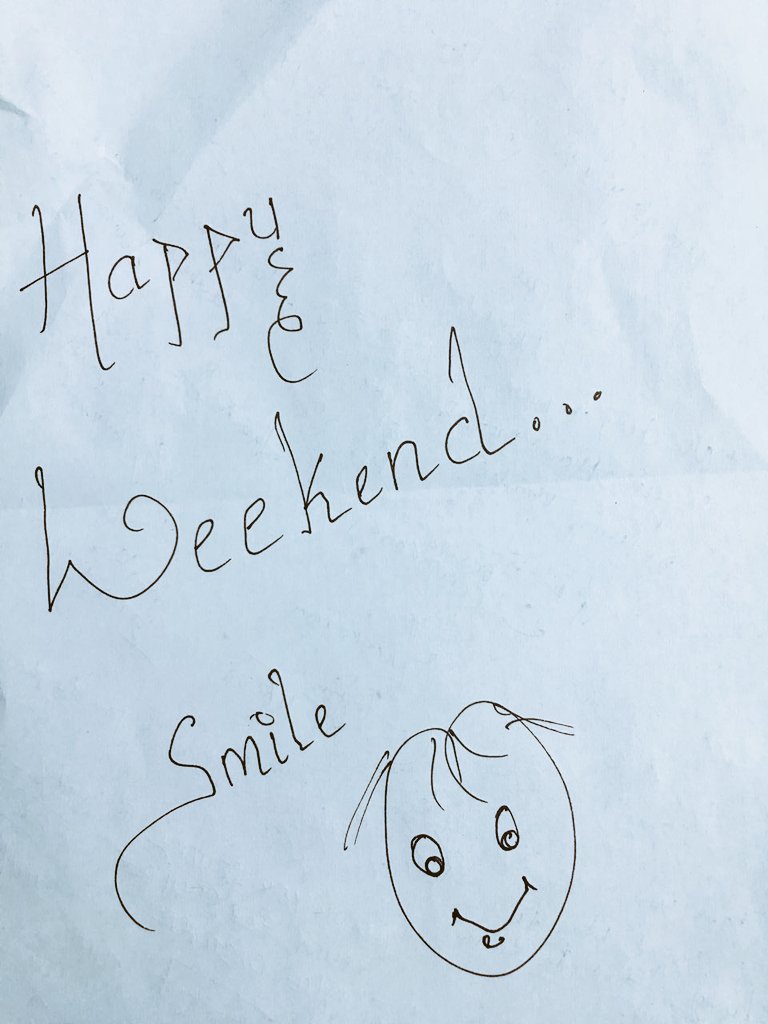 Happy
Weekend...
Smile